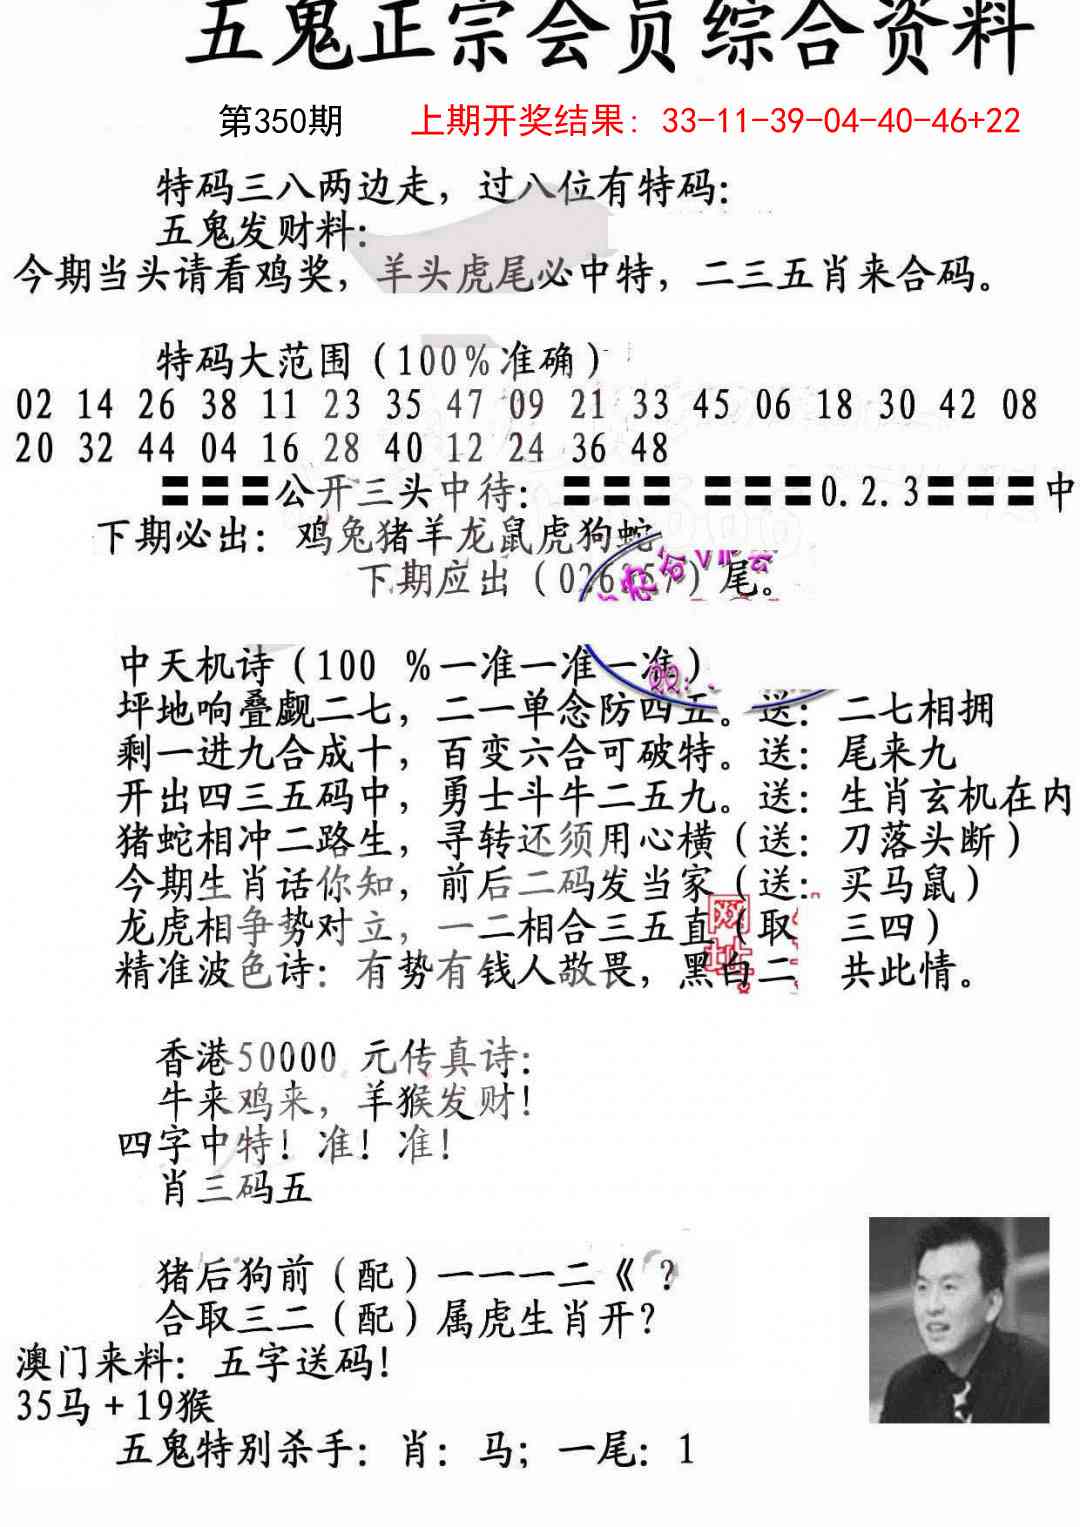 五鬼正宗会员综合资料
第350期 上期开奖结果: 33-11-39-04-40-46+22
特码三八两边走，过八位有特码:
五鬼发财料:
今期当头请看鸡奖，羊头虎尾必中特，二三五肖来合码。
特码大范围(100%准确)
02 14 26 38 11 23 35 47 09 21 33 45 06 18 30 42 08
20 32 44 04 16 28 40 12 24 36 48
〓〓〓公开三头中待: 〓〓〓 〓〓〓0.2.3〓〓〓中
下期必出: 鸡兔猪羊龙鼠虎狗蛇
下期应出(026 57)尾。
中天机诗(100 %一准一准一准)
坪地响叠觑二七，二一单念防四五。送: 二七相拥
剩一进九合成十，百变六合可破特。送: 尾来九
开出四三五码中，勇士斗牛二五九。送: 生肖玄机在内
猪蛇相冲二路生，寻转还须用心横(送: 刀落头断)
今期生肖话你知，前后二码发当家(送: 买马鼠)
龙虎相争势对立，一二相合三五直(取 三四)
精准波色诗: 有势有钱人敬畏，黑白二 共此情。
网址
香港50000 元传真诗:
牛来鸡来，羊猴发财!
四字中特! 准! 准!
肖三码五
猪后狗前(配)一一一二《 ?
合取三二(配)属虎生肖开?
澳门来料: 五字送码!
35马+19猴
五鬼特别杀手: 肖: 马; 一尾: 1